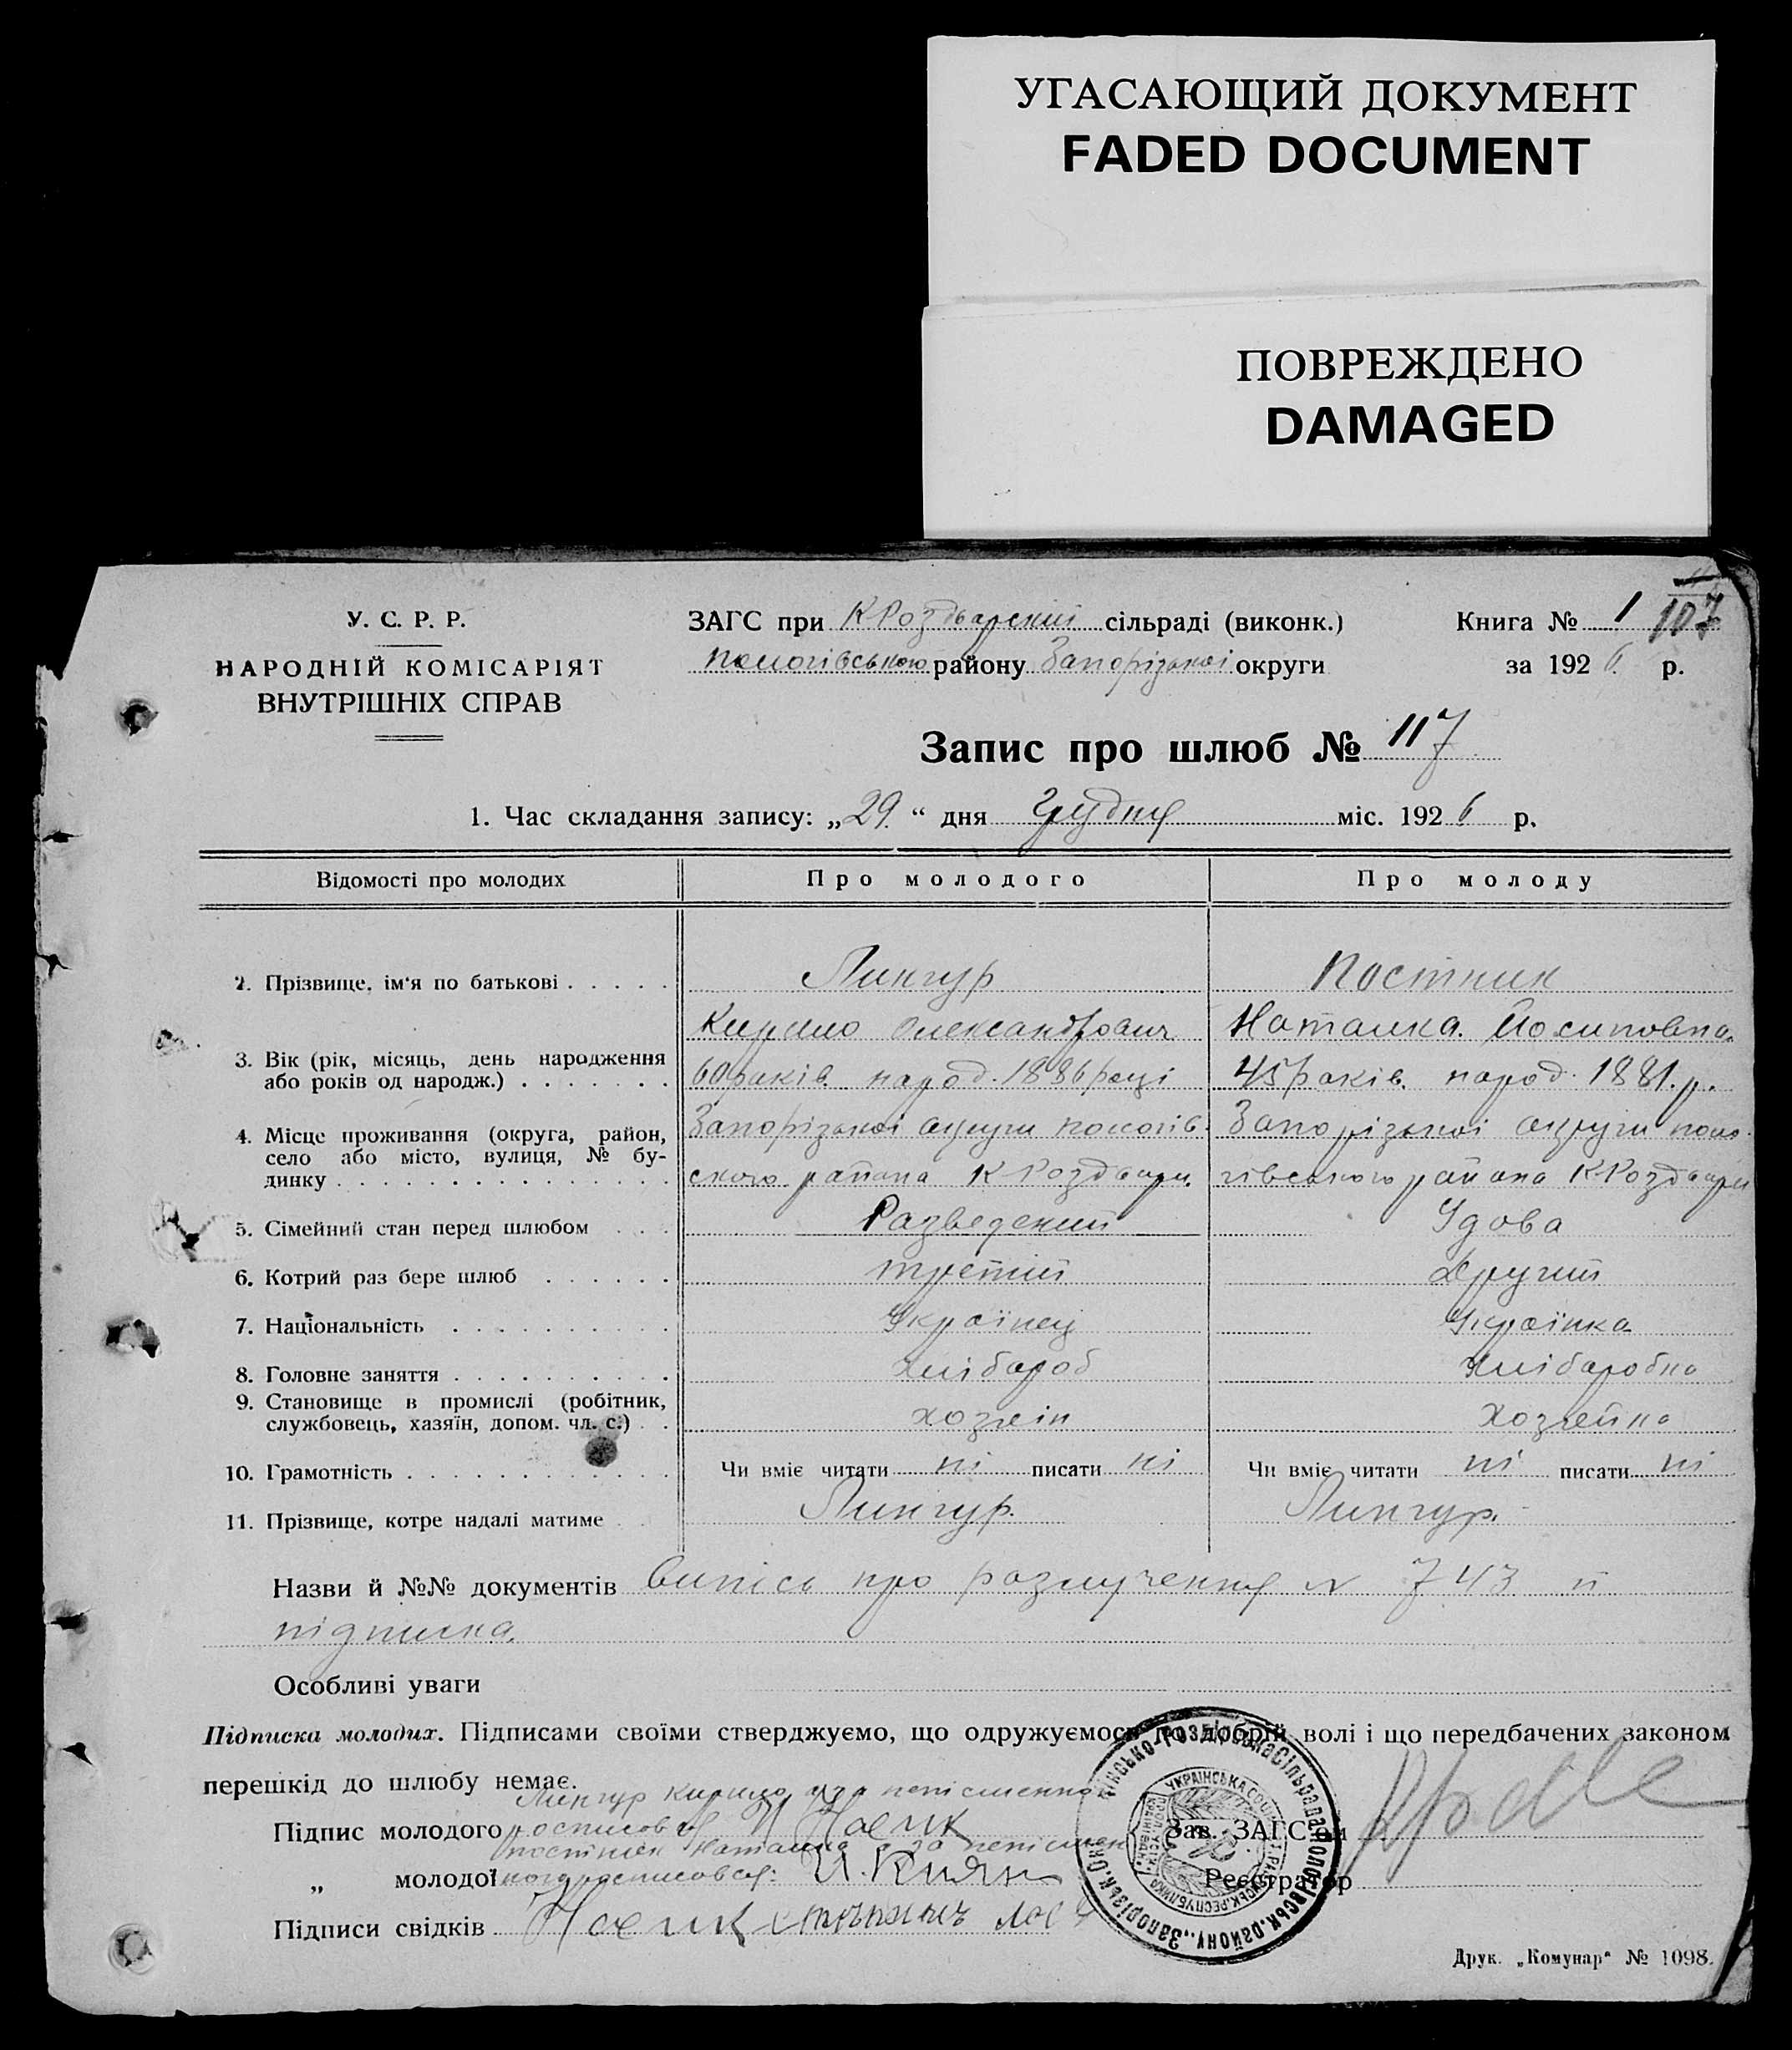 УГАСАЮЩИЙ ДОКУМЕНТ
FADED DOCUMENT
ПОВРЕЖДЕНО
DAMAGED
У. С. Р. Р.
НАРОДНІЙ КОМІСАРІЯТ
ВНУТРІШНІХ СПРАВ
ЗАГС при К Роздварский сільраді (виконк.)
Пологівського району Запорізької округи
Книга № 1 107
за 1926 р.
Запис про шлюб № 117
1. Час складання запису: „29“ дня Грудня міс. 1926 р.
Відомості про молодих Про молодого Про молоду
2. Прізвище, ім'я по батькові Лингур Постник
Кирило Олександрович Наталка Йосиповна
3. Вік (рік, місяць, день народження
або років од народж.) 60 років народ. 1886 році 45 років народ 1881 р.
4. Місце проживання (округа, район,
село або місто, вулиця, № бу-
динку Запорізької округи пологів- Запорізької округи поло-
ского района К-Роздвари гівського района К-Роздвари
5. Сімейний стан перед шлюбом Разведений Удова
6. Котрий раз бере шлюб третий Другий
7. Національність Українец Українка
8. Головне заняття хлібароб хлібаробка
9. Становище в промислі (робітник,
службовець, хазяїн, допом. чл. с.) хозяін Хозяйка
10. Грамотність Чи вміє читати ні писати ні Чи вміє читати ні писати ні
11. Прізвище, котре надалі матиме Лингур. Лингур.
Назви й №№ документів Випісь про разлучення № 743 й
підписка.
Особливі уваги
Підписка молодих. Підписами своїми стверджуємо, що одружуємося по добрій волі і що передбачених законом
перешкід до шлюбу немає.
Лингур Кирило а за непісменно
Підпис молодого росписовся
постнік Наталка а за непісмен
„ молодої ного росписовся: И. Киян
Підписи свідків
Зав. ЗАГС'ом
Реєстратор
Друк. „Комунар“ № 1098.